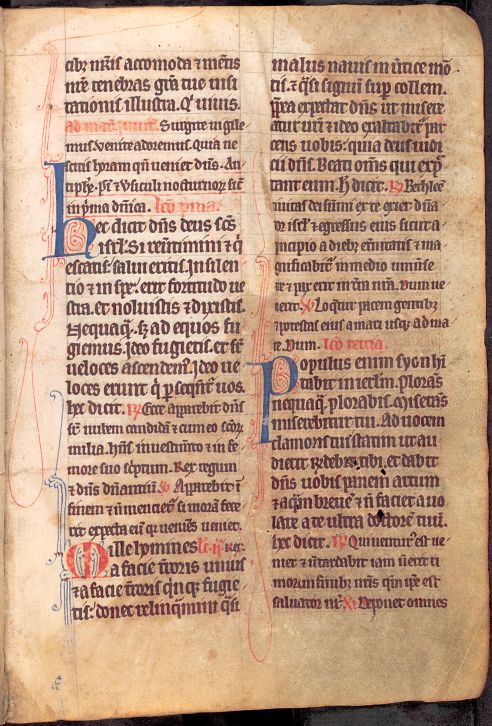 cibȝ nr̄is accomoda ⁊ mētis
nr̄e tenebras gr̄a tue uisi
tationis illustra. Qͥ uiuis.
ad mat̄ inuit̄. Surgite uigile
mus. Venite adoremus. quia ne
scitis horam qn̄ ueniet dn̄s. An
tiph̄. ps̄. ⁊ v̄siculi nocturnoꝝ sic̄
in pͥma dn̄ica. lc̄o pͥma.
Hec dicit dn̄s deus sc̄s
isrl̄. Si reūtimini ⁊ q̇
escatis. salui eritis. In silen
cio ⁊ in spe. erit fortitudo ue
stra. et noluistis ⁊ dixistis.
Nequaq̄. sȝ ad equos fu
giemus. Ideo fugietis. et sr̄
ueloces ascendem̄. Ideo ue
loces erunt qͥ ꝑseqn̄t̄ uos.
hec dicit. ℟ Ecce apparebit dn̄s
sr̄ nubem candidā ⁊ cum eo sc̄oꝝ
milia. hn̄s in uestim̄to ⁊ in fe
more suo sc̄ptum. Rex regum
⁊ dn̄s dn̄antiū. ℣ Apparebit ī
finem ⁊ n̄ mencie⁊ si morā fece
rit expecta eū qr̄ ueniēs ueniet.
Mille homines lc̄. ij. Rex.
a facie t̄roris unius
⁊ a facie t̄roris qͥnqȝ fugie
tis. donec relinqͣmini qͣsi
malus nauis in ūtice mō
tis. ⁊ qͣsi signū suꝑ collem.
ꝓpt̄ea expectat dn̄s ut misere
atur ūri. ⁊ ideo exaltabit᷒ par
cens uobis. quia deus iudi
cii dn̄s. Beati om̄s qui expec
tant eum. H̄ dicit. ℟ Bethlee
ciuitas dei sūmi ex te exiet dn̄a
tor isrl̄. ⁊ egressus eius sicut a
pͥncipio a dieb᷒ et̄nitatis ⁊ ma
gnificabit᷒ in medio uniūse
t̄re ⁊ pax erit in t̄ra nr̄a. Dum ue
nerit. ℣ Loq̄t᷒ pacem gentib᷒
⁊ ptestas eius a mari usqȝ ad ma
re. Dum. lc̄o tercia.
Populus enim syon hi
tabit in ierl̄m. Plorās
nequaq̄ plorabis. Miserās
miserebitur tui. Ad uocem
clamoris tui statim ut au
dierit r̄ndebit tibi. et dabit
dn̄s uobis panem artum
⁊ aqͣm breuē ⁊ n̄ faciet a uo
lare a te ultra doctorē tuū.
hec dicit. ℟ Qui uentur᷒ est ue
niet ⁊ n̄ tardabit iam n̄ erit ti
mor in finib᷒ nr̄is qm̄ ip̄e est
saluator nr̄. ℣ Deponet omnes